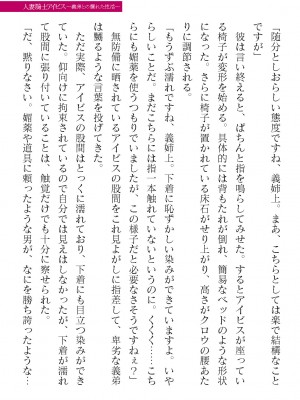 人妻騎士アイビス―義弟との爛れた性活―
『随分としおらしい態度ですね、義姉上。まあ、こちらとしては楽で結構なこと
ですが』
彼は言い終えると、ぱちんと指を鳴らしてみせた。するとアイビスが座ってい
る椅子が変形を始める。具体的には背もたれが倒れ、簡易なベッドのような形状
になった。さらに椅子が置かれている床石がせり上がり、高さがクロウの腰あた
りに調節される。
『もうずぶ濡れですね、義姉上。下着に恥ずかしい染みができていますよ。いや
らしいことだ、まだこちらには指一本触れていないというのに。くくく……こち
らにも媚薬を使うつもりでいましたが、この様子だと必要なさそうですねぇ？』
無防備に晒されているアイビスの股間をこれ見よがしに指差して、卑劣な義弟
は嬲るような言葉を投げてきた。
ただ実際、アイビスの股間はとっくに濡れており、下着にも目立つ染みができ
ていた。仰向けに拘束されているので自分では見えはしなかったが、下着が濡れ
て股間に張り付いていることは、触覚だけでも十分に察せられた。
『だ、黙りなさい。媚薬や道具に頼ったような男が、なにを勝ち誇ったような…